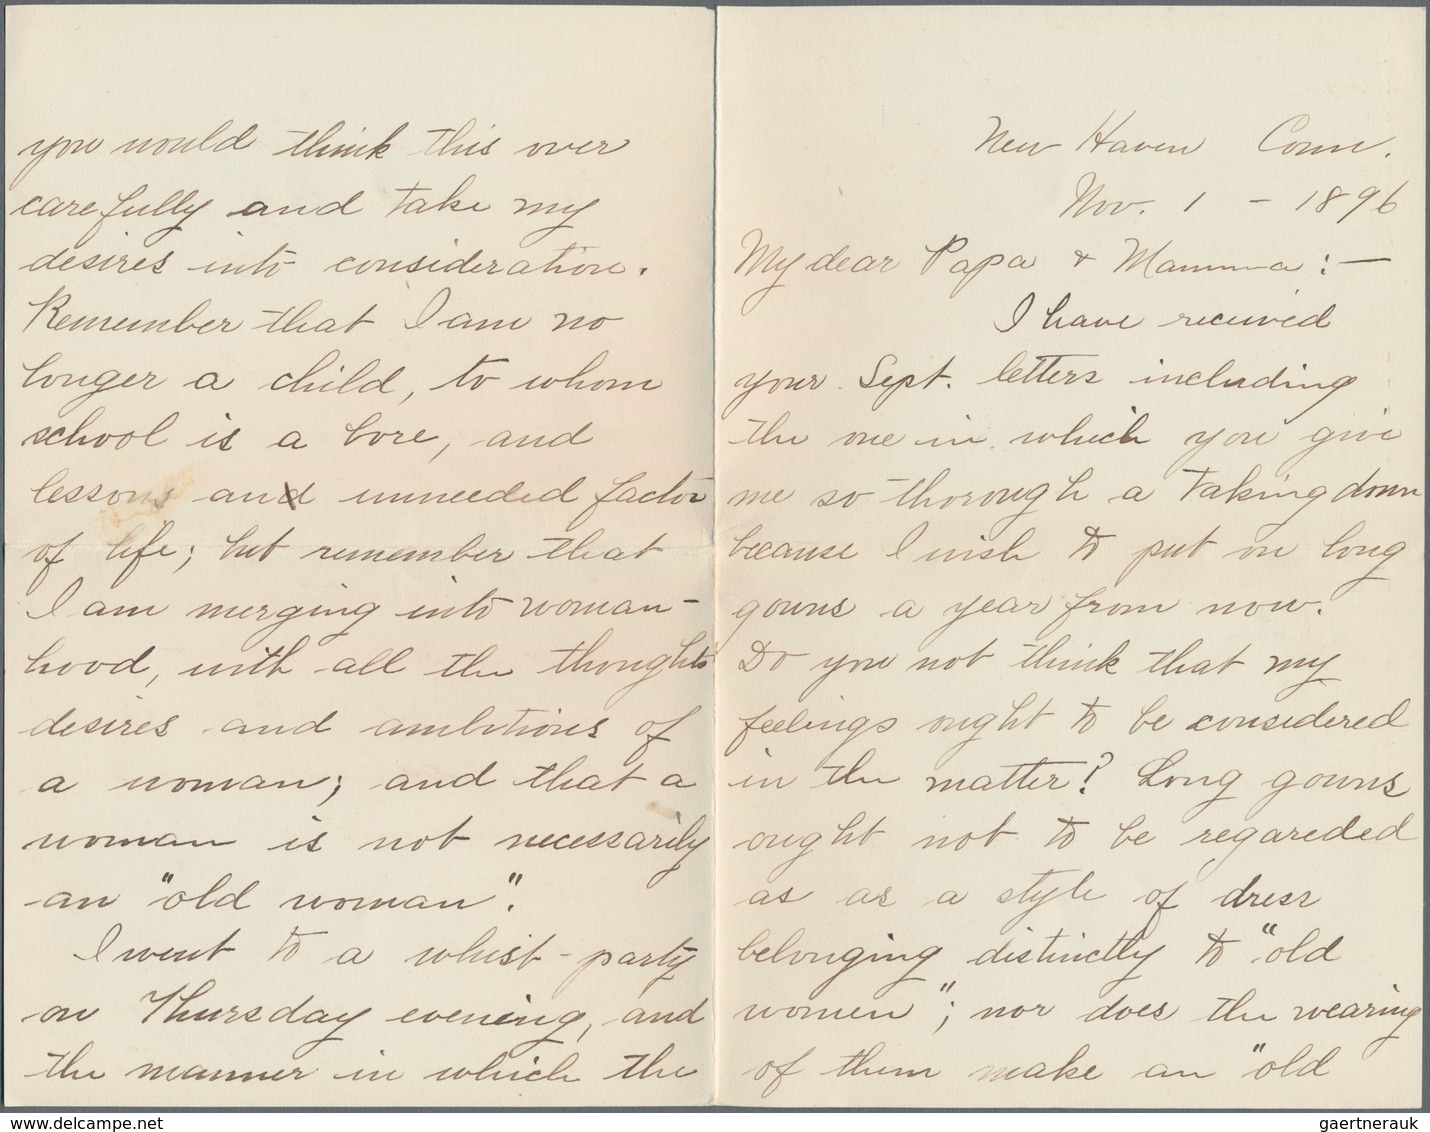 New Haven Conn.
Nov. 1 - 1896
My dear Papa & Mamma :—
I have received
your Sept. letters including
the one in which you give
me so thorough a taking down
because I wish to put on long
gowns a year from now.
Do you not think that my
feelings ought to be considered
in the matter? Long gowns
ought not to be regareded
as as a style of dress
belonging distinctly to "old
women"; nor does the wearing
of them make an "old
you would think this over
carefully and take my
desires into consideration.
Remember that I am no
longer a child, to whom
school is a bore, and
lessons and unneeded factor
of life; but remember that
I am merging into woman-
hood, with all the thoughts
desires and ambitions of
a woman; and that a
woman is not necessarily
an "old woman".
I went to a whist-party
on Thursday evening, and
the manner in which the
www.delcampe.net
gaertnerauk